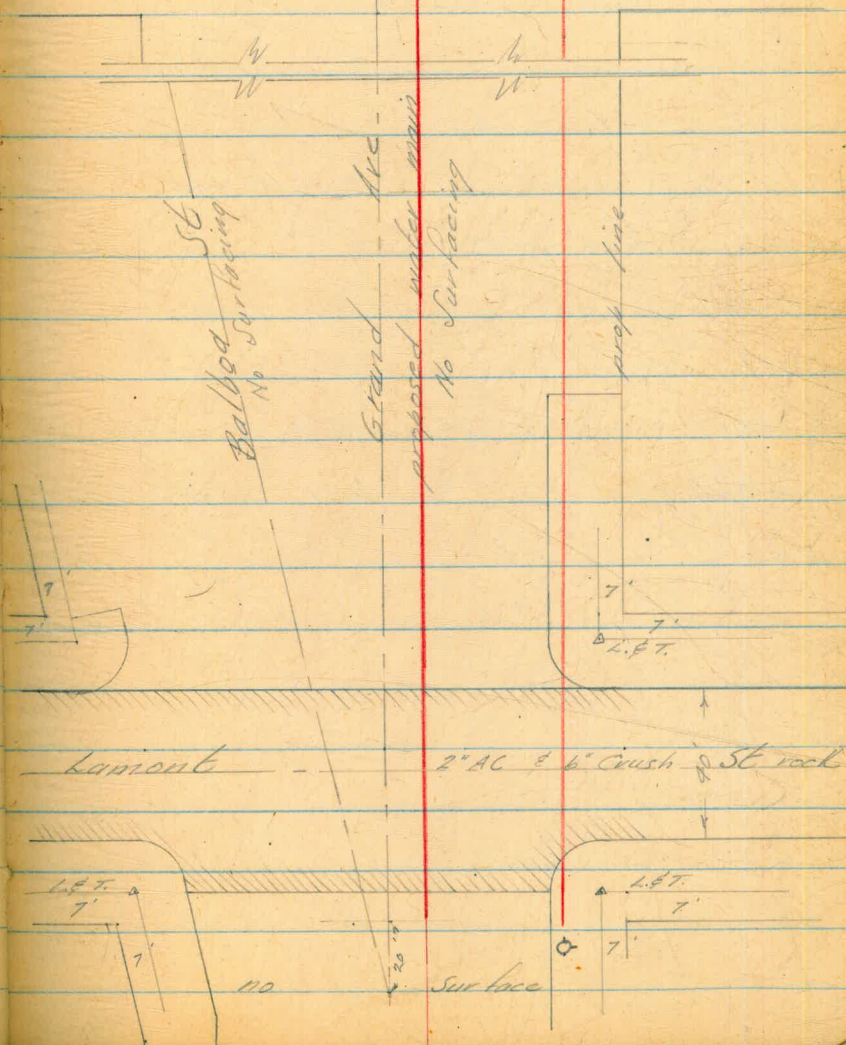 Balboa St
No Surfacing
Grand Ave
proposed water main
No Surfacing
prop line
7'
7'
7'
7'
L.&T.
Lamont St
2" AC & 6" Crush rock
40'
L.&T.
7'
7'
20'
L.&T.
7'
7'
no surface